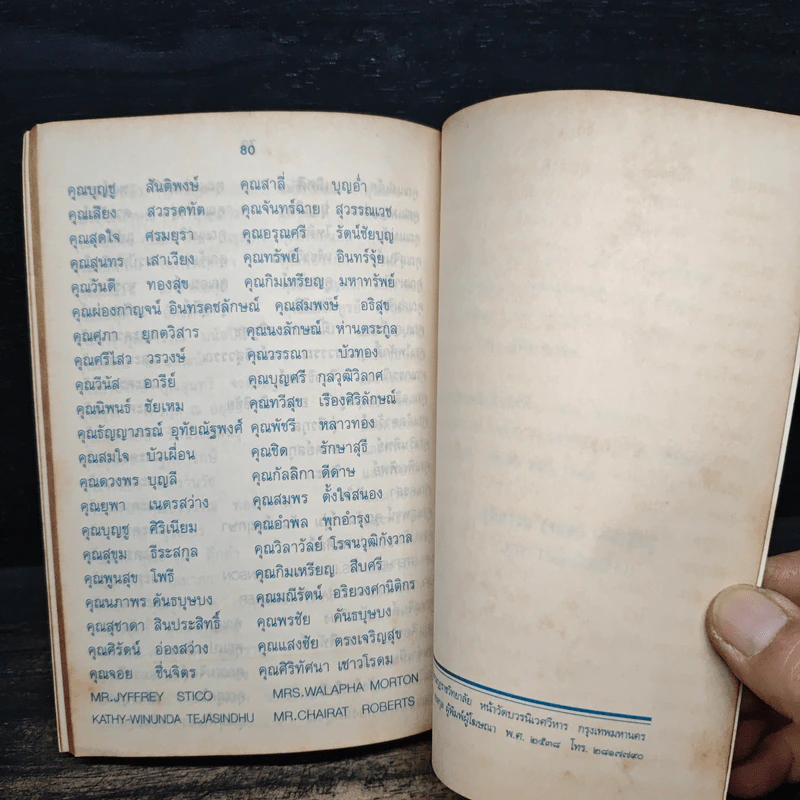 80
คุณบุญชู สันติพงษ์ คุณสาลี่ บุญอ่ำ
คุณเสียง สวรรคทัต คุณจันทร์ฉาย สุวรรณเวช
คุณสุดใจ ศรมยุรา คุณอรุณศรี รัตน์ชัยบุญ
คุณสุนทร เสาเวียง คุณทรัพย์ อินทร์จุ้ย
คุณวันดี ทองสุข คุณกิมเหรียญ มหาทรัพย์
คุณผ่องกาญจน์ อินทรคชลักษณ์ คุณสมพงษ์ อธิสุข
คุณศุภา ยุกตวิสาร คุณนงลักษณ์ ห่านตระกูล
คุณศรีไสว วรวงษ์ คุณวรรณา บัวทอง
คุณวีนัส อารีย์ คุณบุญศรี กุลวุฒิวิลาศ
คุณนิพนธ์ ชัยเหม คุณทวีสุข เรืองศิริลักษณ์
คุณธัญญาภรณ์ อุทัยณัฐพงศ์ คุณพัชรี หลาวทอง
คุณสมใจ บัวเผื่อน คุณชิด รักษาสุธี
คุณดวงพร บุญลี คุณกัลลิกา ดีด่าษ
คุณยุพา เนตรสว่าง คุณสมพร ตั้งใจสนอง
คุณบุญชู ศิริเนียม คุณอำพล พุกอำรุง
คุณสุขุม ธีระสกุล คุณวิลาวัลย์ โรจนวุฒิกังวาล
คุณพูนสุข โพธิ์ คุณกิมเหรียญ สืบศรี
คุณนภาพร คันธบุษบง คุณมณีรัตน์ อริยวงศานิติกร
คุณสุชาดา สินประสิทธิ์ คุณพรชัย คันธบุษบง
คุณศิรัตน์ อ่องสว่าง คุณแสงชัย ตรงเจริญสุข
คุณจอย ชื่นจิตร คุณศิริทัศนา เชาวโรดม
MR.JYFFREY STICO MRS.WALAPHA MORTON
KATHY-WINUNDA TEJASINDHU MR.CHAIRAT ROBERTS
หน้าวัดบวรนิเวศวิหาร กรุงเทพมหานคร
ผู้พิมพ์ผู้โฆษณา พ.ศ. ๒๕๓๘ โทร. ๒๘๑๗๗๙๐